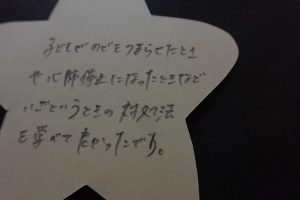 子どもがのどをつまらせたとき
や心肺停止になったときなど
いざというときの対処法
を学べてよかったです。